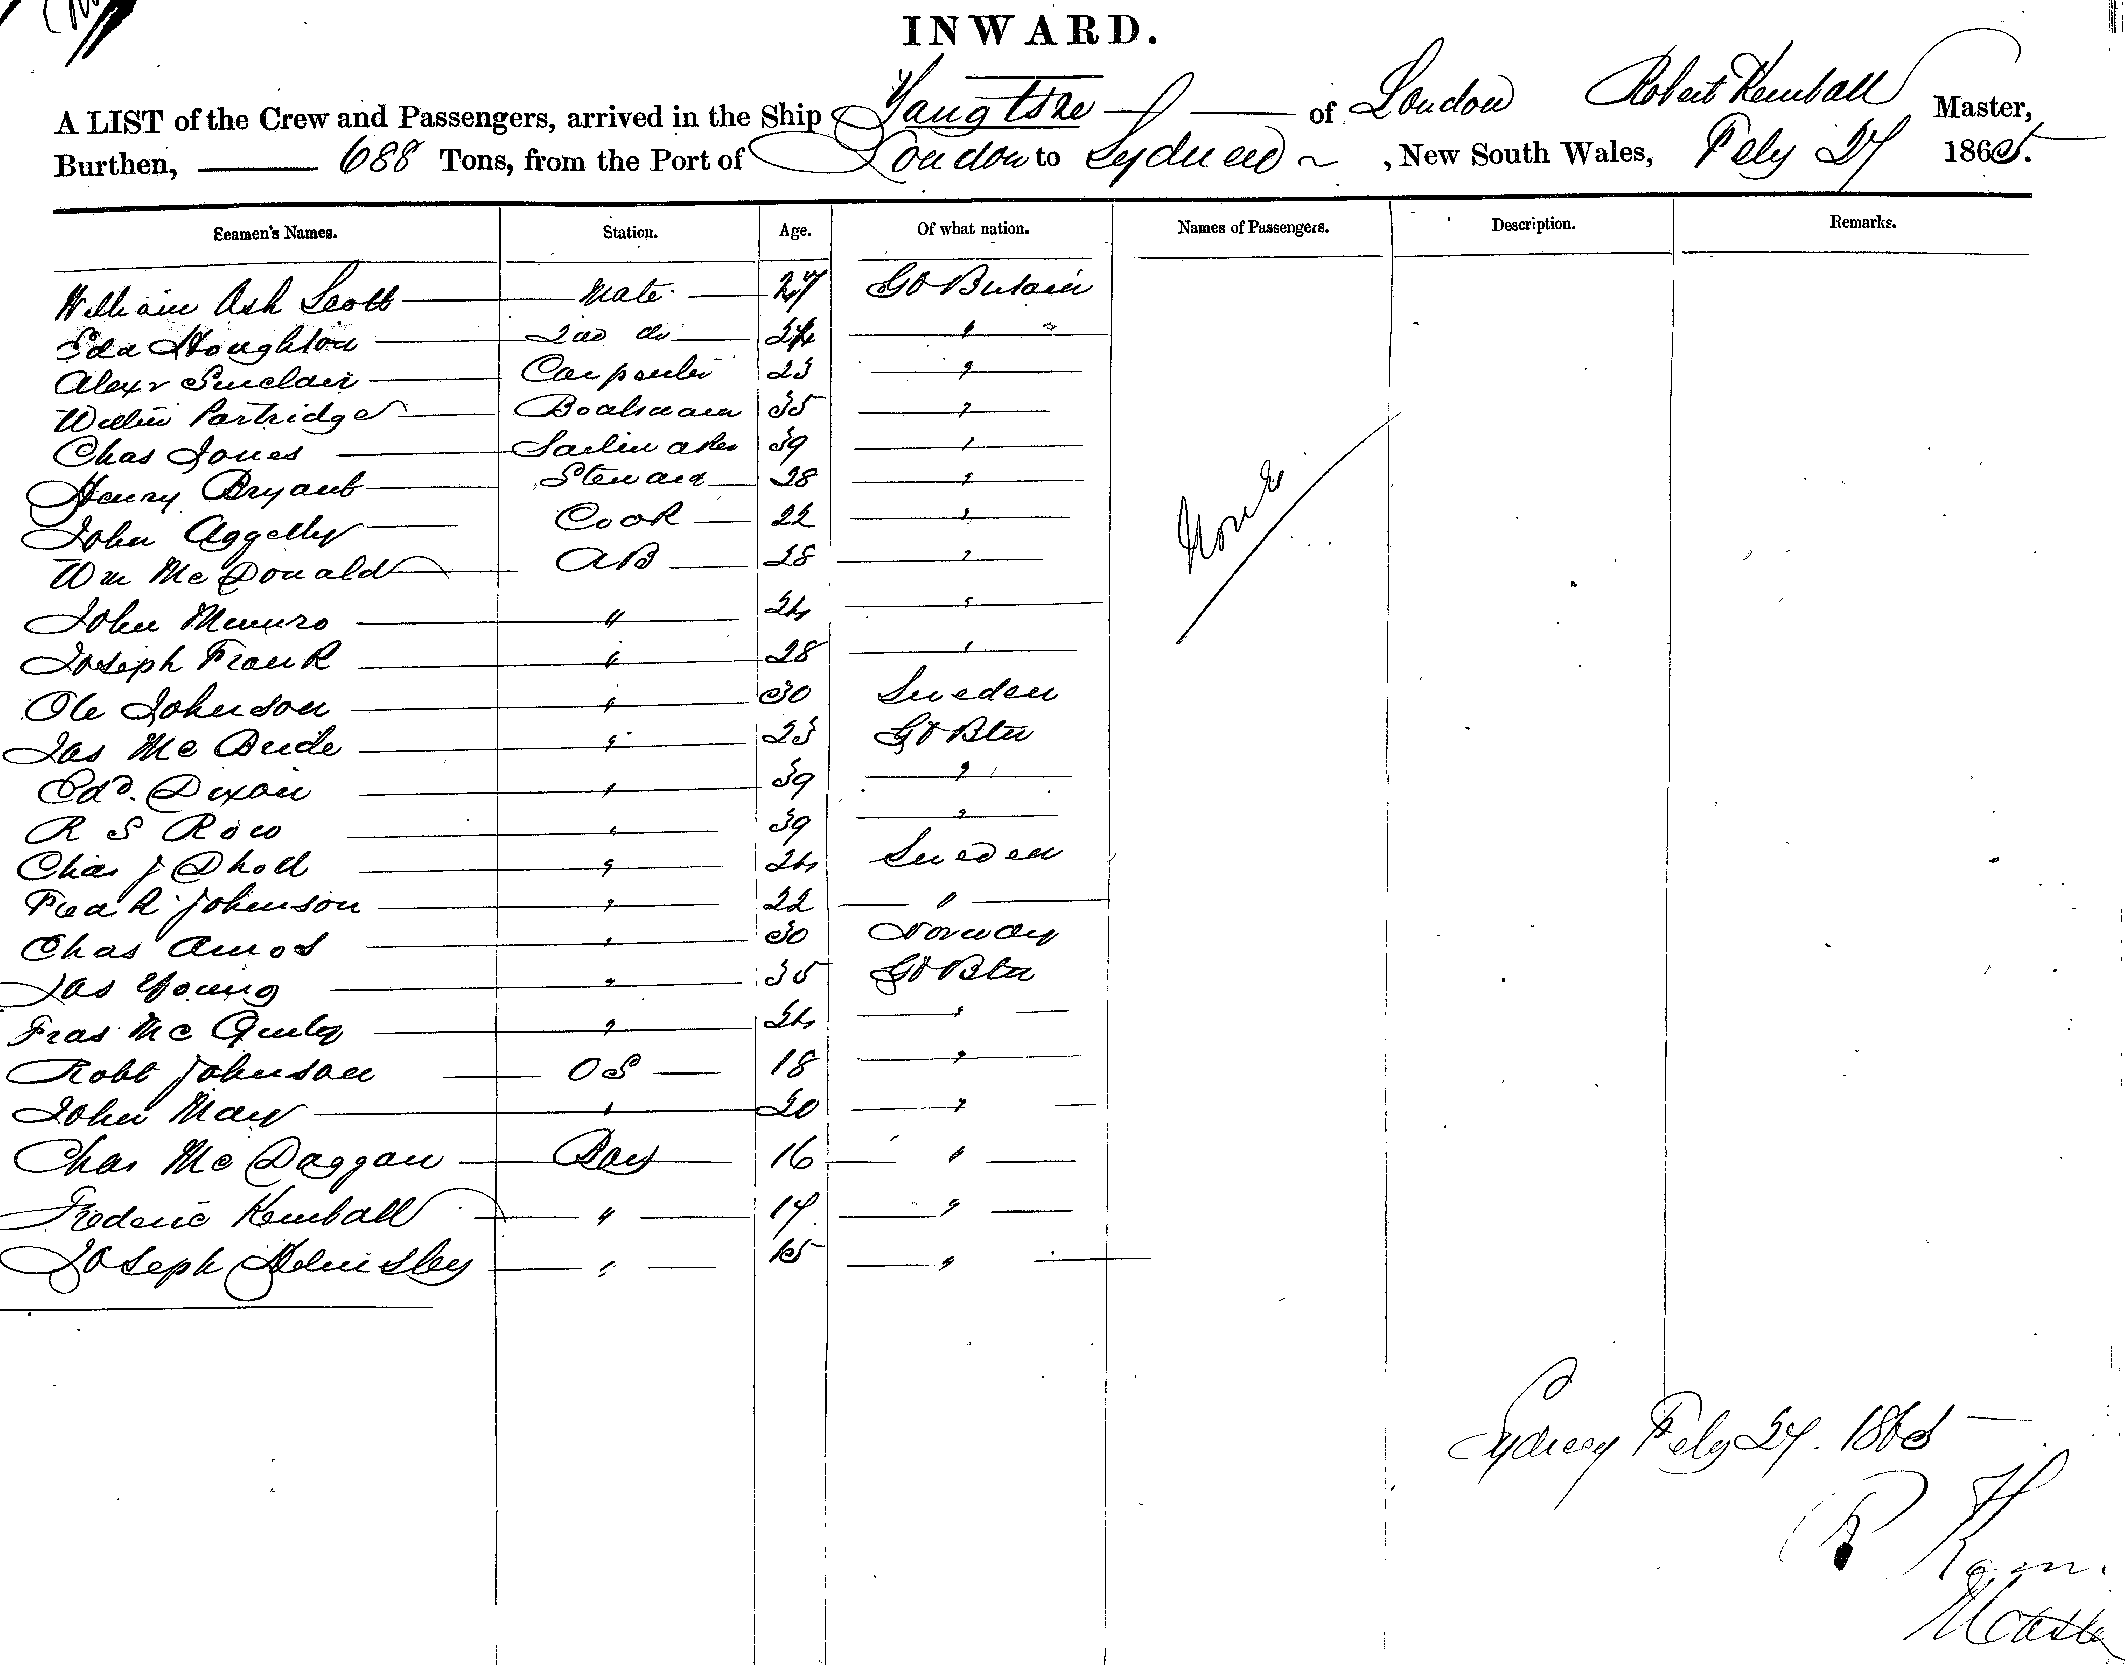 INWARD.
A LIST of the Crew and Passengers, arrived in the Ship Yangtsze of London Robert Kemball Master,
Burthen, 688 Tons, from the Port of London to Sydney, New South Wales, Feby 27 1865.
Seamen's Names. Station. Age. Of what nation. Names of Passengers. Description. Remarks.
William Ash Scott Mate 27 Gt Britain
Edd Houghton 2nd do 24 "
Alexr Sinclair Carpenter 23 "
Willm Partridge Boatswain 35 "
Chas Jones Sailmaker 39 "
Henry Bryant Steward 28 "
John Cook 22 "
Wm McDonald AB 28 "
None
John Munro " 24 "
Joseph Frank " 28 "
Ole Johnson " 30 Sweden
Jas McBride " 23 Gt Btn
Edd. Dixon " 39 "
R S Row " 39 "
Chas J " 24 Sweden
Fredk Johnson " 22 "
Chas Amos " 30 Norway
Jas Young " 35 Gt Btn
Fras Mc " 24 "
Robt Johnson OS 18 "
John May " 20 "
Chas Mc Daggan Boy 16 "
Frederic Kemball " 14 "
Joseph Helmsley " 15 "
Sydney Feby 27. 1865
R Kem
Master